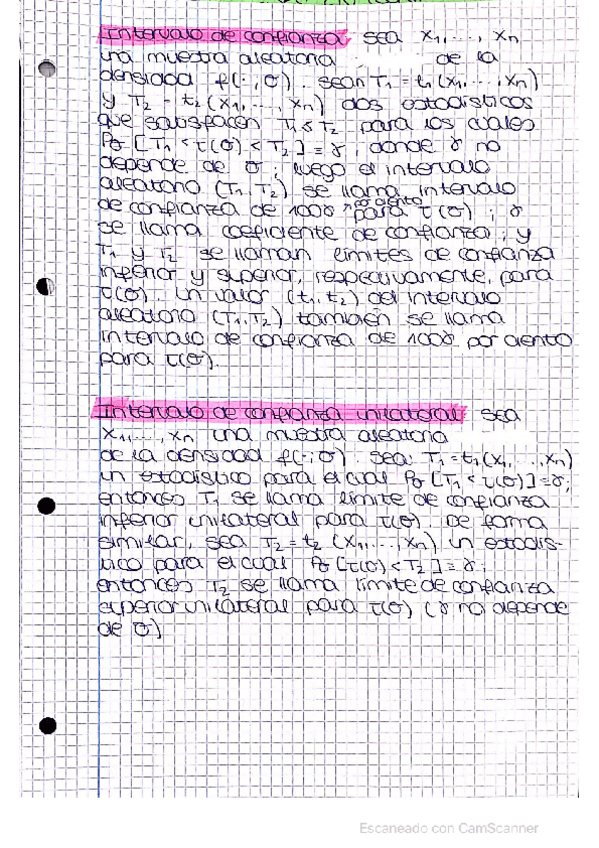 Intervalo de confianza sea x₁, ..., xₙ
una muestra aleatoria de la
densidad f(·; θ). sean T₁ = t₁(x₁, ..., xₙ)
y T₂ = t₂(x₁, ..., xₙ) dos estadísticos
que satisfacen T₁ ≤ T₂ para los cuales
Pθ [T₁ < τ(θ) < T₂] = γ, donde γ no
depende de θ; luego el intervalo
aleatorio (T₁, T₂) se llama intervalo
de confianza de 100γ por ciento para τ(θ); γ
se llama coeficiente de confianza; y
T₁ y T₂ se llaman límites de confianza
inferior y superior, respectivamente, para
τ(θ). Un valor (t₁, t₂) del intervalo
aleatorio (T₁, T₂) también se llama
intervalo de confianza de 100γ por ciento
para τ(θ).
Intervalo de confianza unilateral sea
x₁, ..., xₙ una muestra aleatoria
de la densidad f(·; θ). sea: T₁ = t₁(x₁, ..., xₙ)
un estadístico para el cual Pθ [T₁ < τ(θ)] = γ;
entonces T₁ se llama límite de confianza
inferior unilateral para τ(θ). De forma
similar, sea T₂ = t₂ (x₁, ..., xₙ) un estadís-
tico para el cual Pθ [τ(θ) < T₂] = γ;
entonces T₂ se llama límite de confianza
superior unilateral para τ(θ) (γ no depende
de θ)
Escaneado con CamScanner